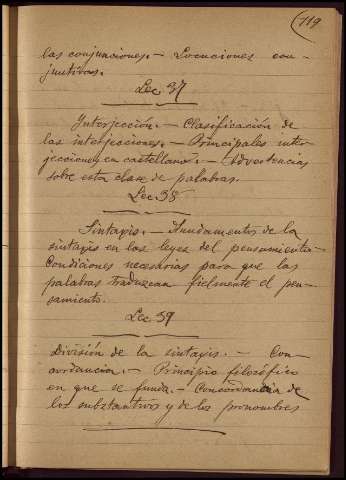 119
las conjunciones. - Locuciones con-
juntivas.
Lec 37
Interjección. - Clasificación de
las interjecciones. - Principales inter-
jecciones en castellano. - Advertencias
sobre esta clase de palabras.
Lec 38
Sintaxis. - Fundamentos de la
sintaxis en las leyes del pensamiento-
Condiciones necesarias para que las
palabras traduzcan fielmente el pen-
samiento.
Lec 39
División de la sintaxis. - Con-
cordancia. - Principio filosófico
en que se funda. - Concordancia de
los substantivos y de los pronombres